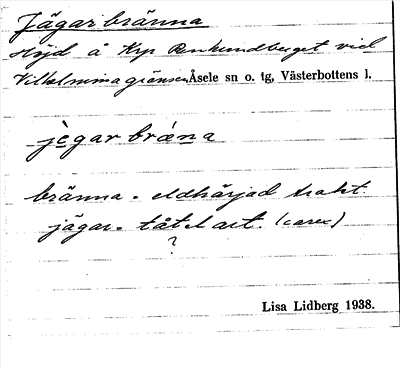 Jägarbränna
Höjd å Krp Renhundberget vid
Vilhelmina gränsen Åsele sn o. tg, Västerbottens l.
jègarbrǽna
bränna = eldhärjad trakt.
jägar = tåtel art. (carex)
?
Lisa Lidberg 1938.